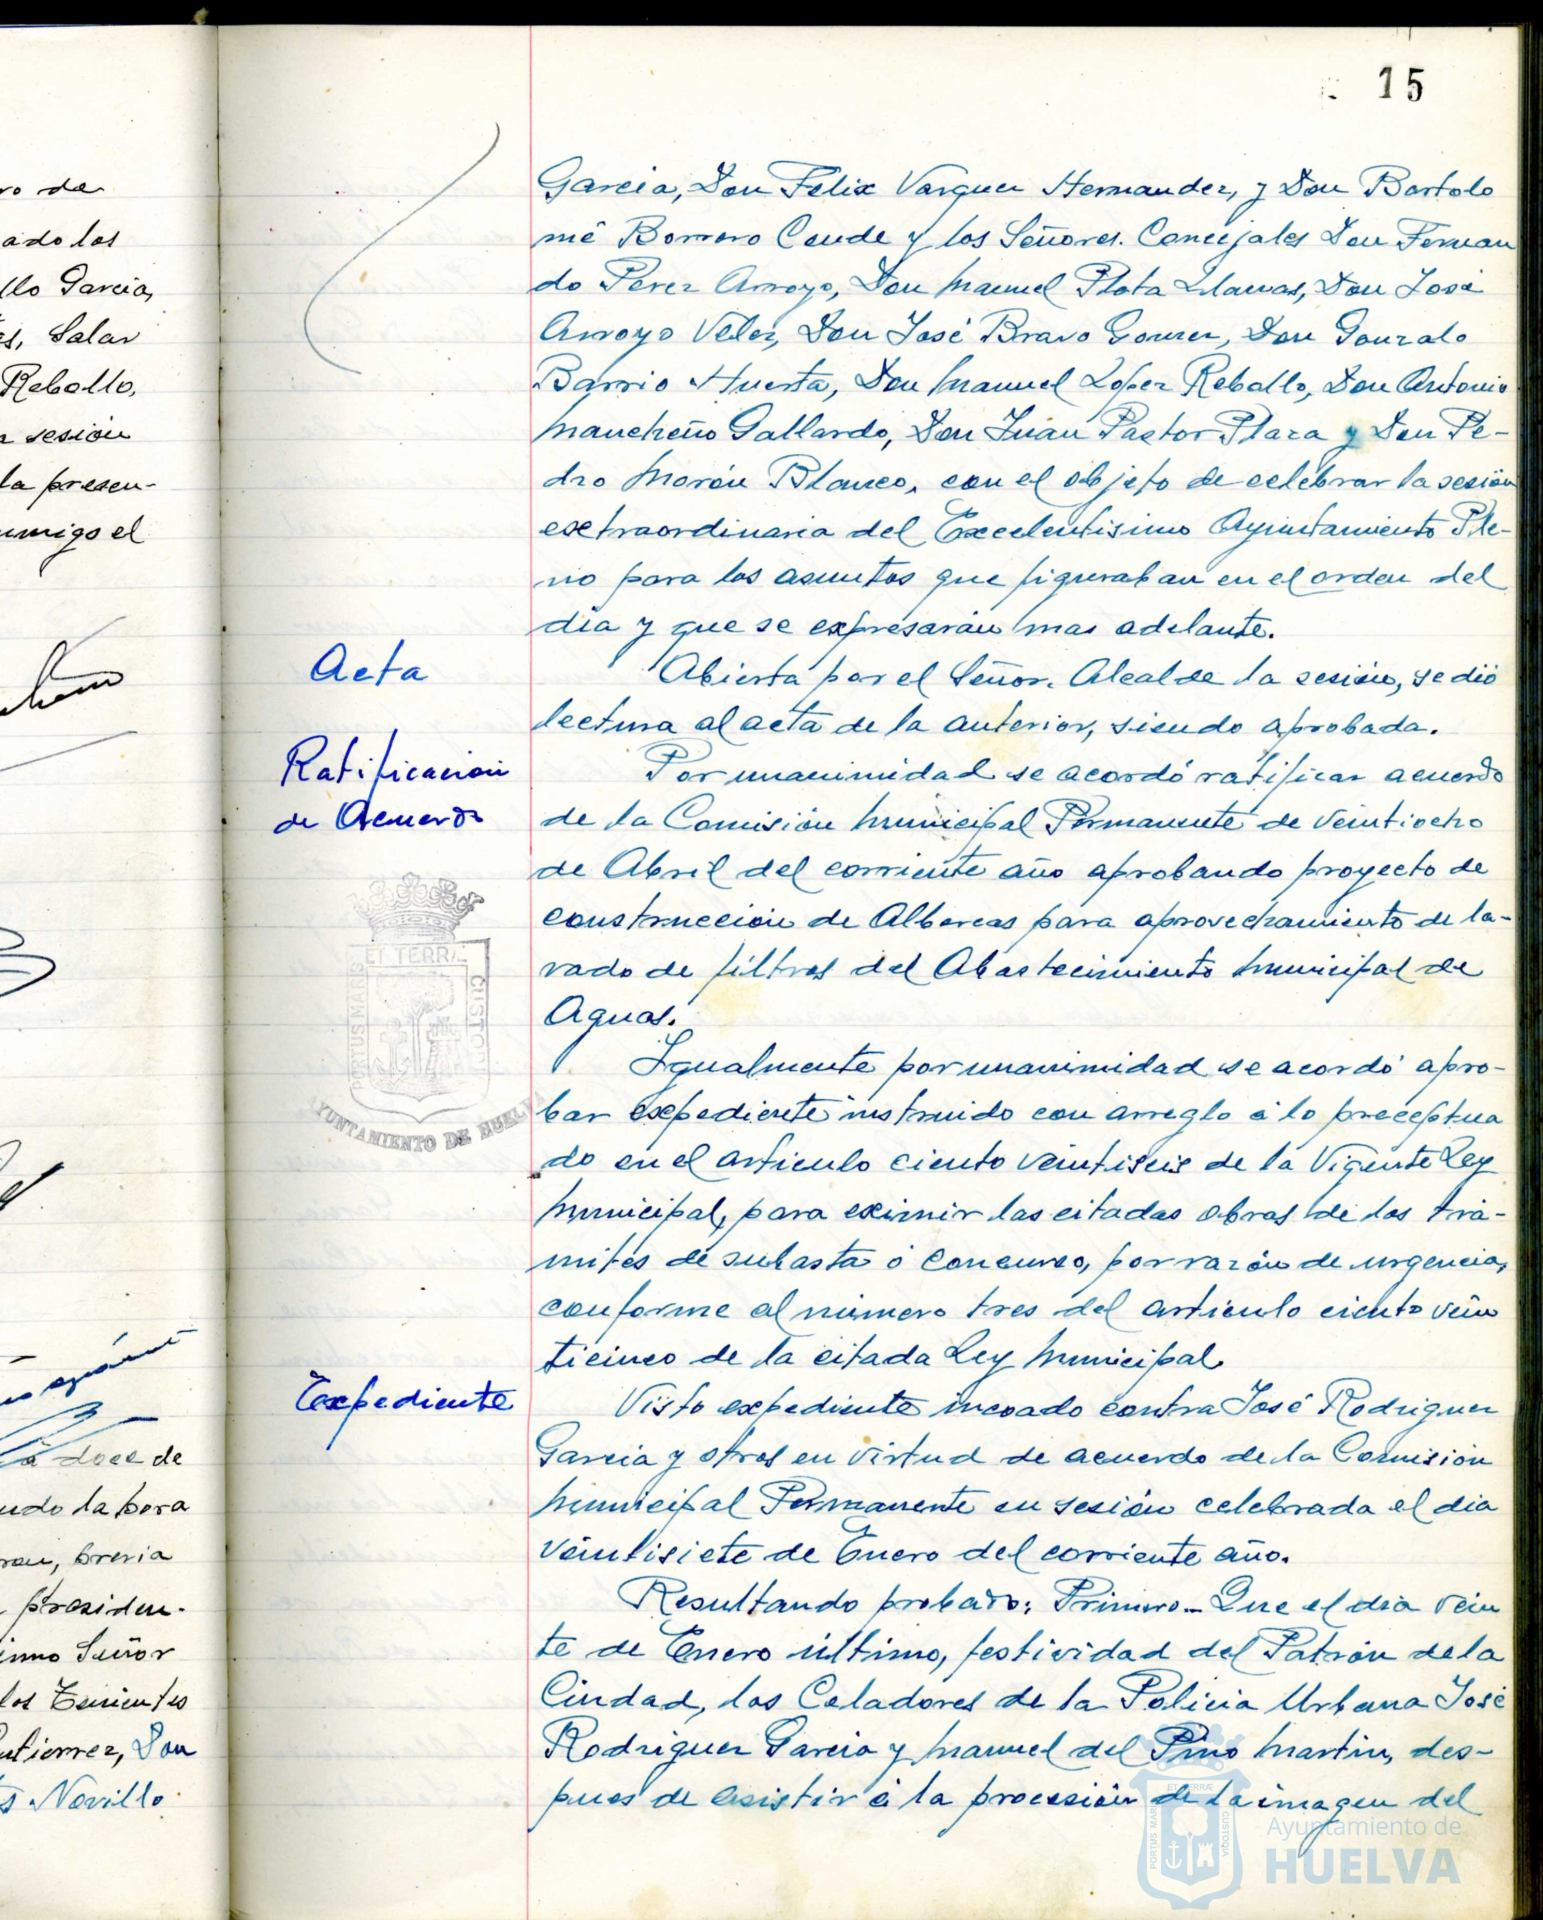 15
ro de
ado los
llo Garcia,
es, Salar
Rebollo,
a sesión
la presen-
nmigo el
a doce de
ndo la hora
ron, previa
presiden-
imo Señor
los Tenientes
utierrez, Don
s Novillo
Garcia, Don Felix Vazquez Hernandez, y Don Bartolo
mé Borrero Conde y los Señores. Concejales Don Fernan
do Perez Arroyo, Don Manuel Plata Llamas, Don José
Arroyo Velez, Don José Bravo Gomez, Don Gonzalo
Barrio Huerta, Don Manuel Lopez Rebollo, Don Antonio
Mancheño Gallardo, Don Juan Pastor Plaza y Don Pe-
dro Morón Blanco, con el objeto de celebrar la sesión
extraordinaria del Excelentisimo Ayuntamiento Ple-
no para los asuntos que figuraban en el orden del
dia y que se expresarán mas adelante.
Acta
Abierta por el Señor. Alcalde la sesión, se dió
lectura al acta de la anterior, siendo aprobada.
Ratificacion
de Acuerdo
Por unanimidad se acordó ratificar acuerdo
de la Comisión Municipal Permanente de veintiocho
de Abril del corriente año aprobando proyecto de
construcción de Albercas para aprovechamiento de la-
vado de filtros del Abastecimiento Municipal de
Aguas.
ET TERRÆ
PORTUS MARIS
CUSTODI
AYUNTAMIENTO DE HUELVA
Igualmente por unanimidad se acordó apro-
bar expediente instruido con arreglo á lo preceptua
do en el articulo ciento veintiseis de la Vigente Ley
Municipal, para eximir las citadas obras de los trá-
mites de subasta ó concurso, por razón de urgencia,
conforme al número tres del articulo ciento vein
ticinco de la citada Ley Municipal.
Expediente
Visto expediente incoado contra José Rodriguez
Garcia y otros en virtud de acuerdo de la Comisión
Municipal Permanente en sesión celebrada el dia
veintisiete de Enero del corriente año.
Resultando probado: Primero.- Que el dia vein
te de Enero último, festividad del Patrón de la
Ciudad, los Celadores de la Policia Urbana José
Rodriguez Garcia y Manuel del Pino Martin, des-
pues de asistir á la procesión de la imagen del
ET TERRÆ
PORTUS MARIS
CUSTODIA
Ayuntamiento de
HUELVA